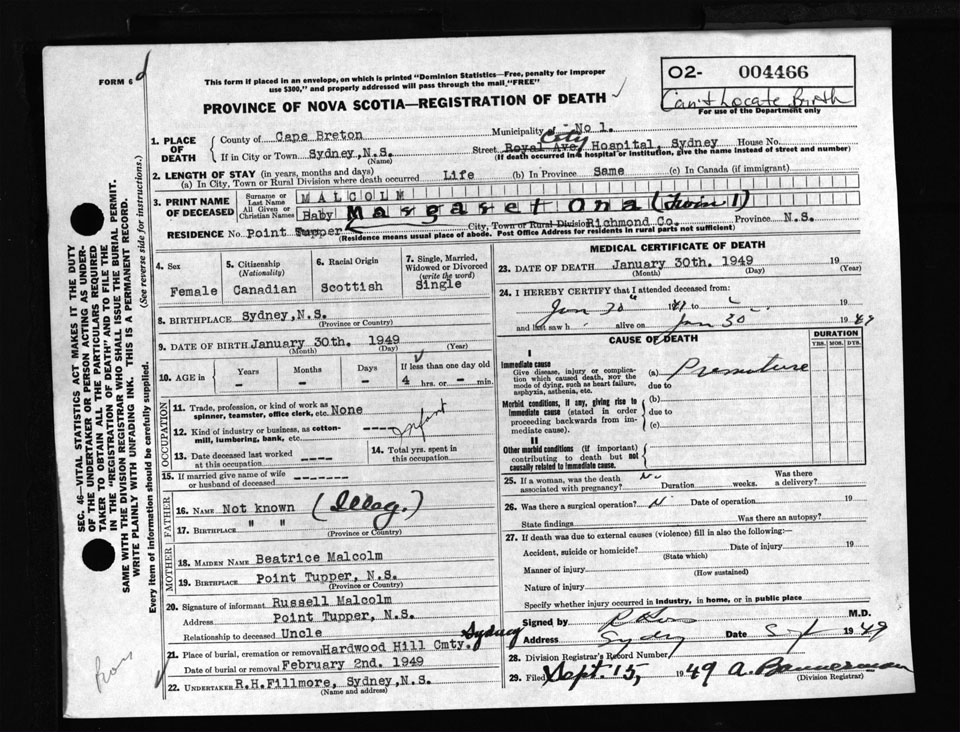 FORM 6
This form if placed in an envelope, on which is printed "Dominion Statistics—Free, penalty for improper
use $300," and properly addressed will pass through the mail "FREE"
02- 004466
Can't Locate Birth
For use of the Department only
PROVINCE OF NOVA SCOTIA—REGISTRATION OF DEATH
1. PLACE OF DEATH
County of Cape Breton Municipality of No 1.
If in City or Town Sydney, N.S. (Name) Street Royal Ave, City Hospital, Sydney House No.
(If death occurred in a hospital or institution, give the name instead of street and number)
2. LENGTH OF STAY (in years, months and days)
(a) In City, Town or Rural Division where death occurred Life (b) In Province Same (c) In Canada (if immigrant)
3. PRINT NAME OF DECEASED
Surname or Last Name MALCOLM
All Given or Christian Names Baby Margaret Ona (Twin 1)
RESIDENCE No. Point Tupper City, Town or Rural Division Richmond Co. N.S.
(Residence means usual place of abode. Post Office Address for residents in rural parts not sufficient)
4. Sex Female
5. Citizenship (Nationality) Canadian
6. Racial Origin Scottish
7. Single, Married, Widowed or Divorced (write the word) Single
8. BIRTHPLACE Sydney, N.S.
(Province or Country)
9. DATE OF BIRTH January 30th. 1949
(Month) (Day) (Year)
10. AGE in Years - Months - Days - If less than one day old 4 hrs. or - min.
OCCUPATION
11. Trade, profession, or kind of work as spinner, teamster, office clerk, etc. None
12. Kind of industry or business, as cotton-mill, lumbering, bank, etc. ----
Infant
13. Date deceased last worked at this occupation ----
14. Total yrs. spent in this occupation
15. If married give name of wife or husband of deceased -------
FATHER
16. Name Not known (Illeg.)
17. Birthplace " "
(Province or Country)
MOTHER
18. Maiden Name Beatrice Malcolm
19. Birthplace Point Tupper, N.S.
(Province or Country)
20. Signature of informant Russell Malcolm
Address Point Tupper, N.S.
Relationship to deceased Uncle
21. Place of burial, cremation or removal Hardwood Hill Cmty. Sydney
Date of burial or removal February 2nd. 1949
22. Undertaker R.H.Fillmore, Sydney, N.S.
(Name and address)
MEDICAL CERTIFICATE OF DEATH
23. DATE OF DEATH January 30th. 1949 19
(Month) (Day) (Year)
24. I HEREBY CERTIFY that I attended deceased from:
Jan 30" 1949 to 19
and last saw h alive on Jan 30 1949
CAUSE OF DEATH
DURATION
YRS. MOS. DYS.
I
Immediate cause
Give disease, injury or complication which caused death, not the mode of dying, such as heart failure, asphyxia, asthenia, etc.
(a) Premature
due to
Morbid conditions, if any, giving rise to immediate cause (stated in order proceeding backwards from immediate cause).
(b)
due to
(c)
II
Other morbid conditions (if important) contributing to death but not causally related to immediate cause.
25. If a woman, was the death associated with pregnancy? No Duration weeks. Was there a delivery?
26. Was there a surgical operation? N Date of operation 19
State findings Was there an autopsy?
27. If death was due to external causes (violence) fill in also the following:
Accident, suicide or homicide? Date of injury 19
(State which)
Manner of injury
(How sustained)
Nature of injury
Specify whether injury occurred in industry, in home, or in public place
Signed by M.D.
Address Sydney Date 1949
28. Division Registrar's Record Number
29. Filed Sept. 15, 1949 A. Bannerman
(Division Registrar)
SEC. 46—VITAL STATISTICS ACT MAKES IT THE DUTY
OF THE UNDERTAKER OR PERSON ACTING AS UNDERTAKER
TO OBTAIN ALL THE PARTICULARS REQUIRED
IN THE "REGISTRATION OF DEATH" AND TO FILE THE
SAME WITH THE DIVISION REGISTRAR WHO SHALL ISSUE THE BURIAL PERMIT.
WRITE PLAINLY WITH UNFADING INK. THIS IS A PERMANENT RECORD.
Every item of information should be carefully supplied. (See reverse side for instructions.)